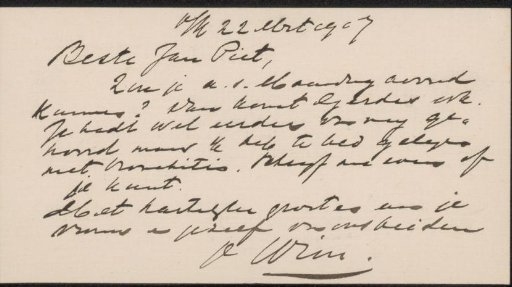 22 Mrt 1907
Beste Jan Piet,
Zou je a.s. Maandag avond
kunnen? Dan komt ook.
Je hadt wel eerder van mij ge-
hoord maar ik heb te bed gelegen
met bronchitis. Schrijf me even of
je kunt.
Met hartelijke groeten aan je
vrouw en jezelf van ons beiden
Wim.